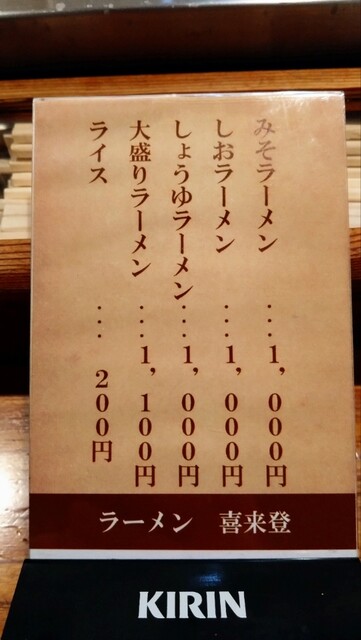 みそラーメン ・・・1,000円
しおラーメン ・・・1,000円
しょうゆラーメン・・・1,000円
大盛りラーメン ・・・1,100円
ライス ・・・ 200円
ラーメン 喜来登
KIRIN